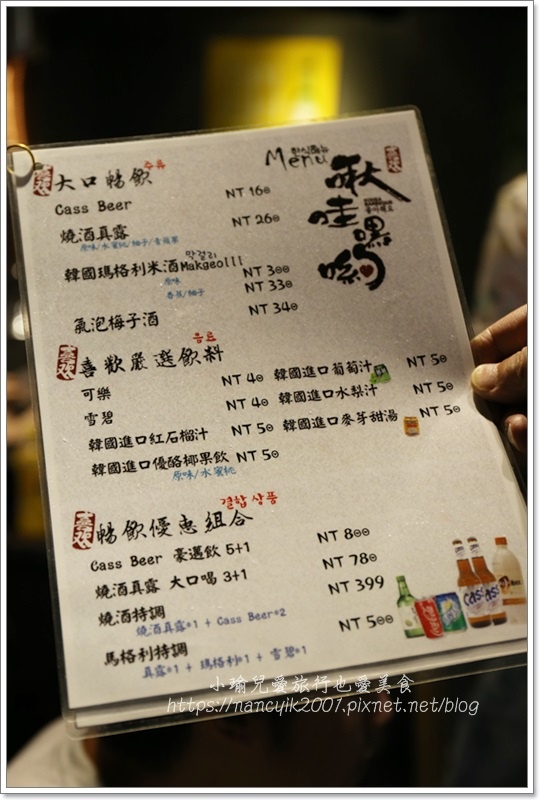 한식메뉴
Menu
啾哇嘿喲
喜歡 大口暢飲 주류
Cass Beer NT 160
燒酒真露 NT 260
原味/水蜜桃/柚子/青蘋果
막걸리
韓國瑪格利米酒Makgeolli
原味 NT 300
香蕉/柚子 NT 330
氣泡梅子酒 NT 340
음료
喜歡 喜歡嚴選飲料
可樂 NT 40
雪碧 NT 40
韓國進口紅石榴汁 NT 50
韓國進口優酪椰果飲 NT 50
原味/水蜜桃
韓國進口葡萄汁 NT 50
韓國進口水梨汁 NT 50
韓國進口麥芽甜湯 NT 50
결합 상품
喜歡 暢飲優惠組合
Cass Beer 豪邁飲 5+1 NT 800
燒酒真露 大口喝 3+1 NT 780
燒酒特調 NT 399
燒酒真露*1 + Cass Beer*2
馬格利特調 NT 500
真露*1 + 瑪格利*1 + 雪碧*1
小瑜兒愛旅行也愛美食
https://nancyik2001.pixnet.net/blog